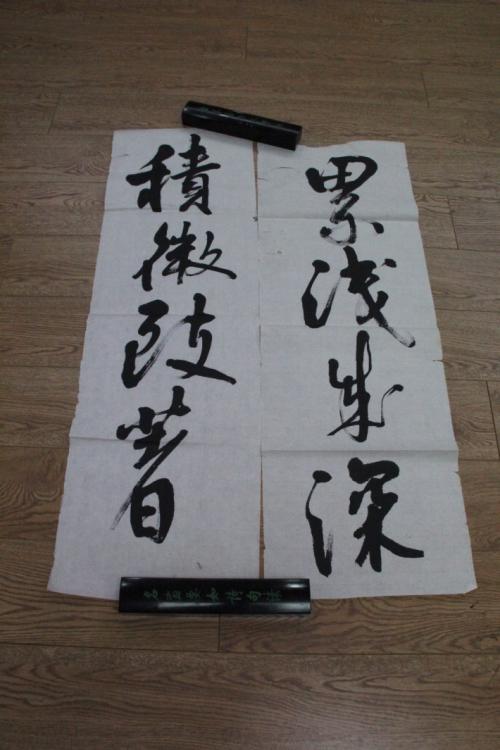 累浅成深
積微致著